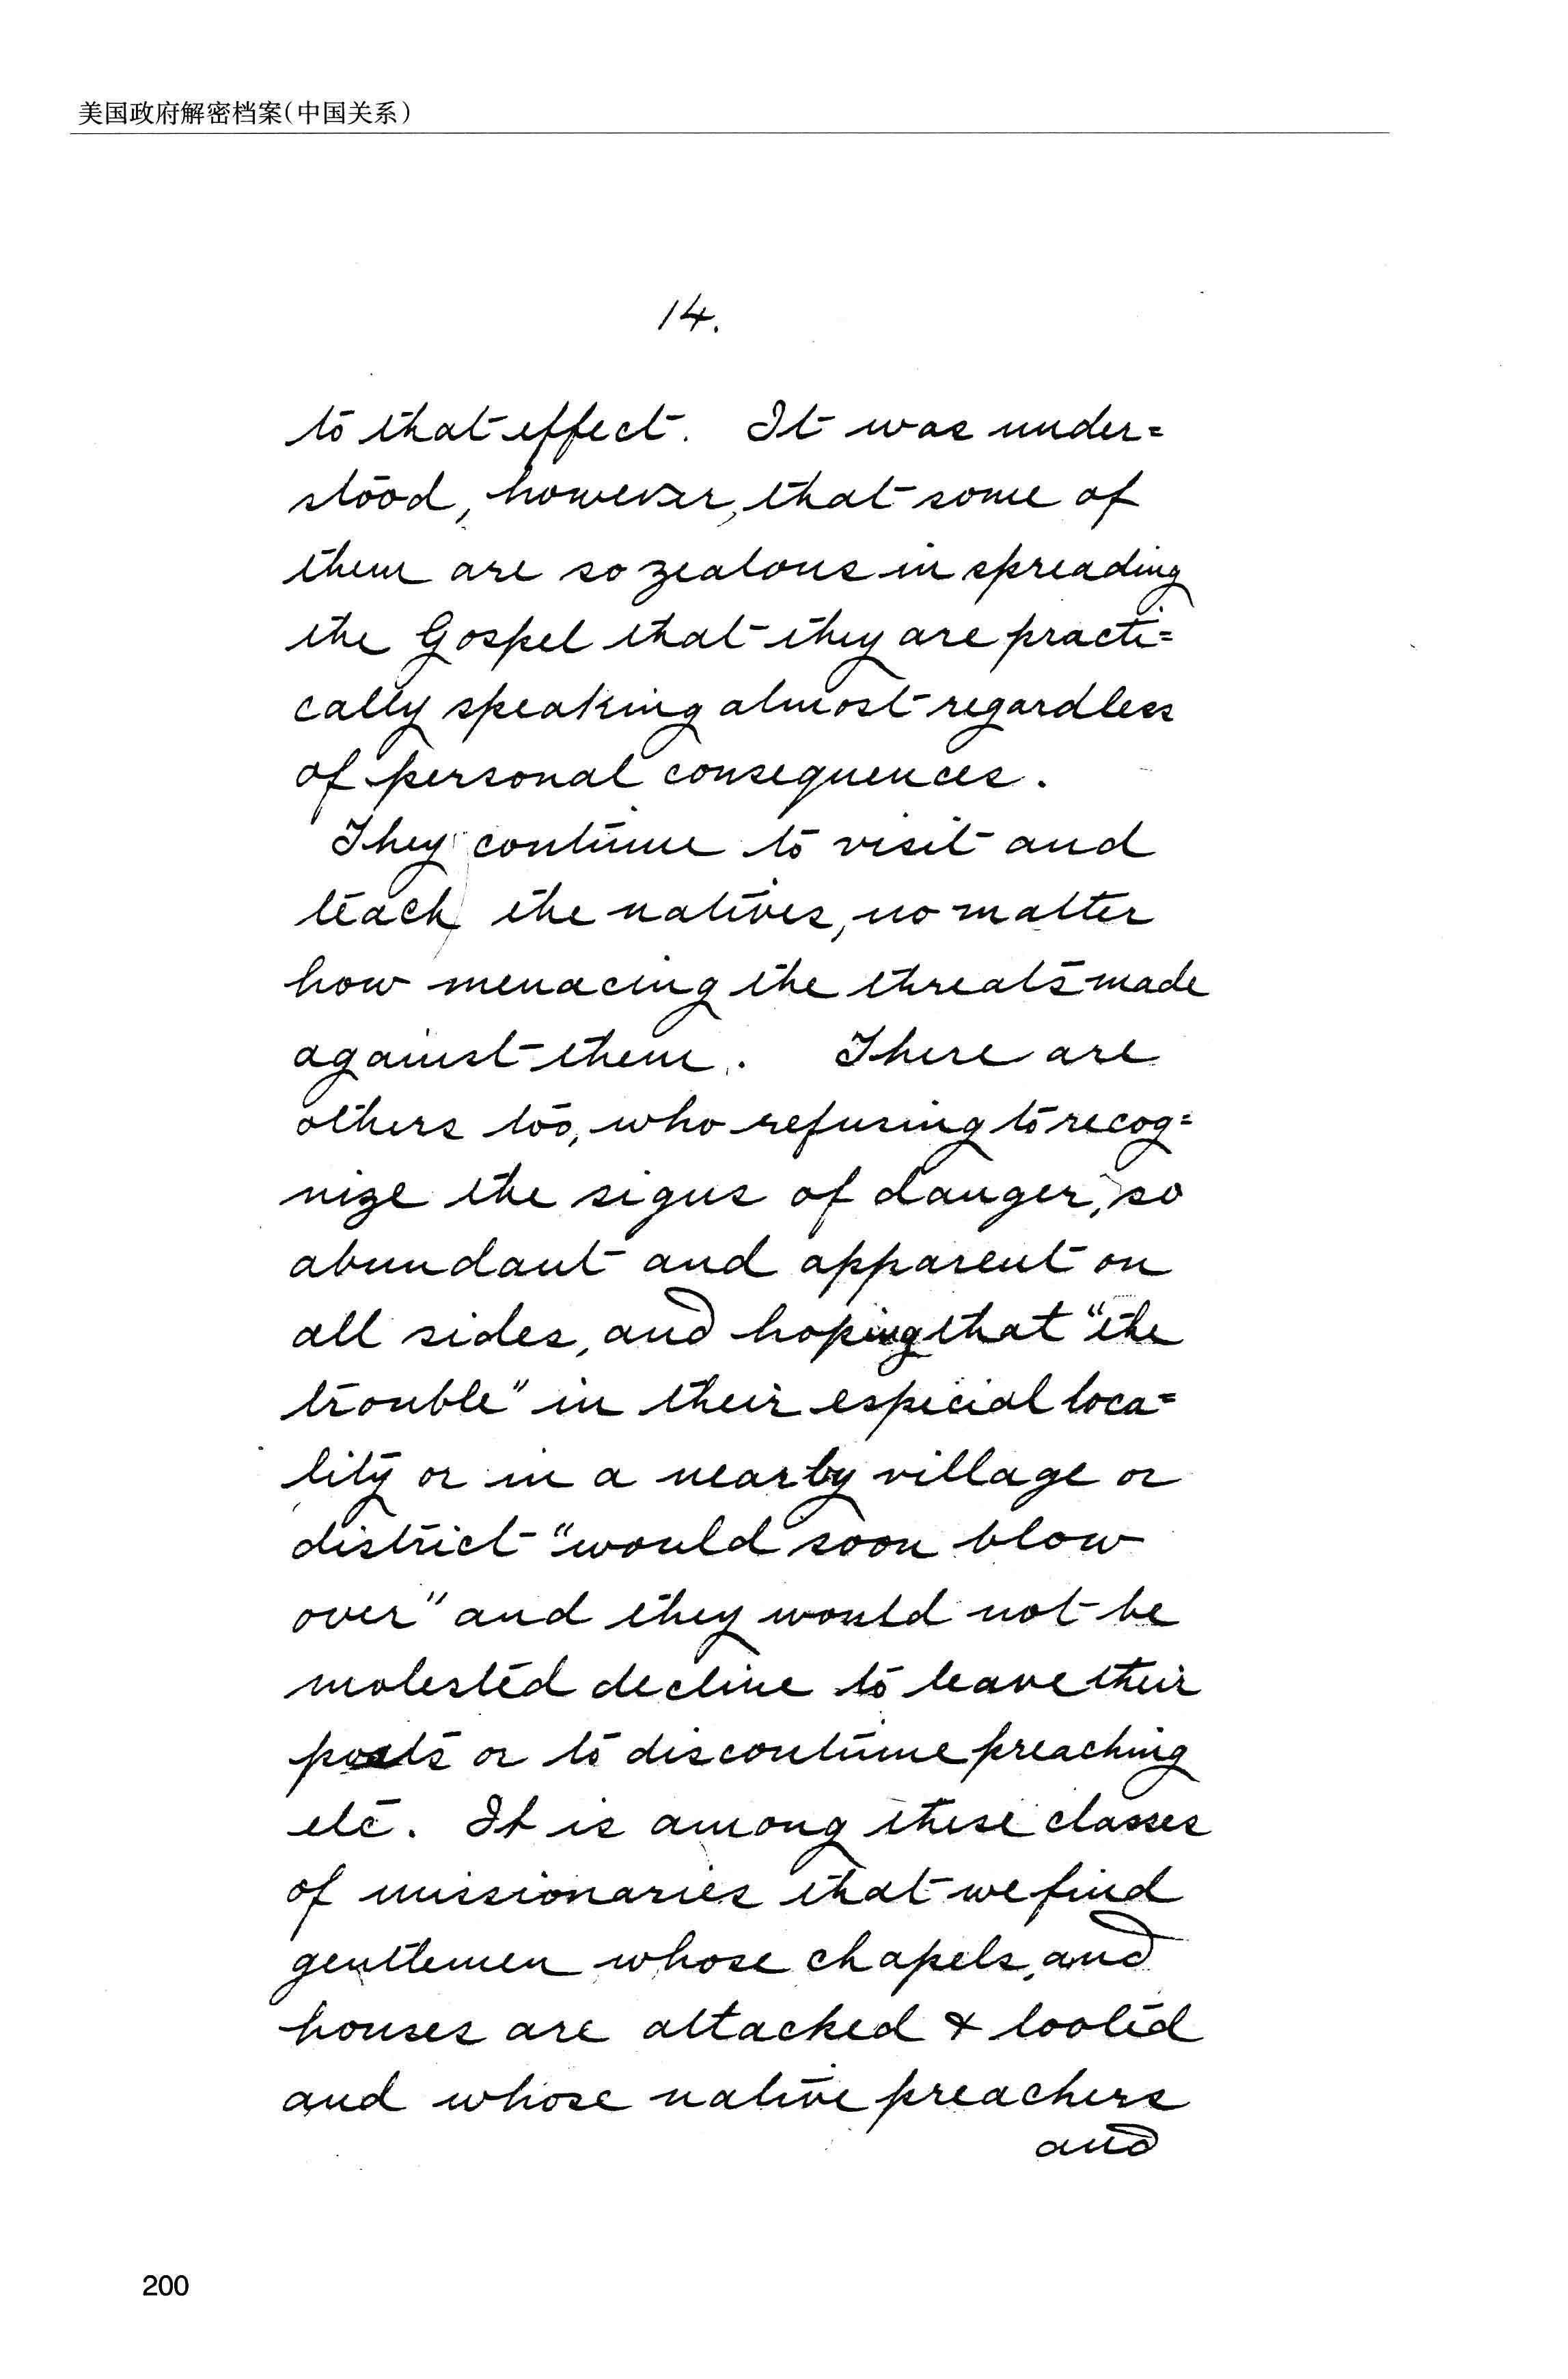 美国政府解密档案(中国关系)
14.
to that effect. It was under=
stood, however, that some of
them are so zealous in spreading
the Gospel that they are practi=
cally speaking almost regardless
of personal consequences.
They continue to visit and
teach the natives, no matter
how menacing the threats made
against them. There are
others too, who refusing to recog=
nize the signs of danger, so
abundant and apparent on
all sides, and hoping that "the
trouble" in their especial loca=
lity or in a nearby village or
district "would soon blow
over" and they would not be
molested decline to leave their
posts or to discontinue preaching
etc. It is among these classes
of missionaries that we find
gentlemen whose chapels, and
houses are attacked & looted
and whose native preachers
and
200